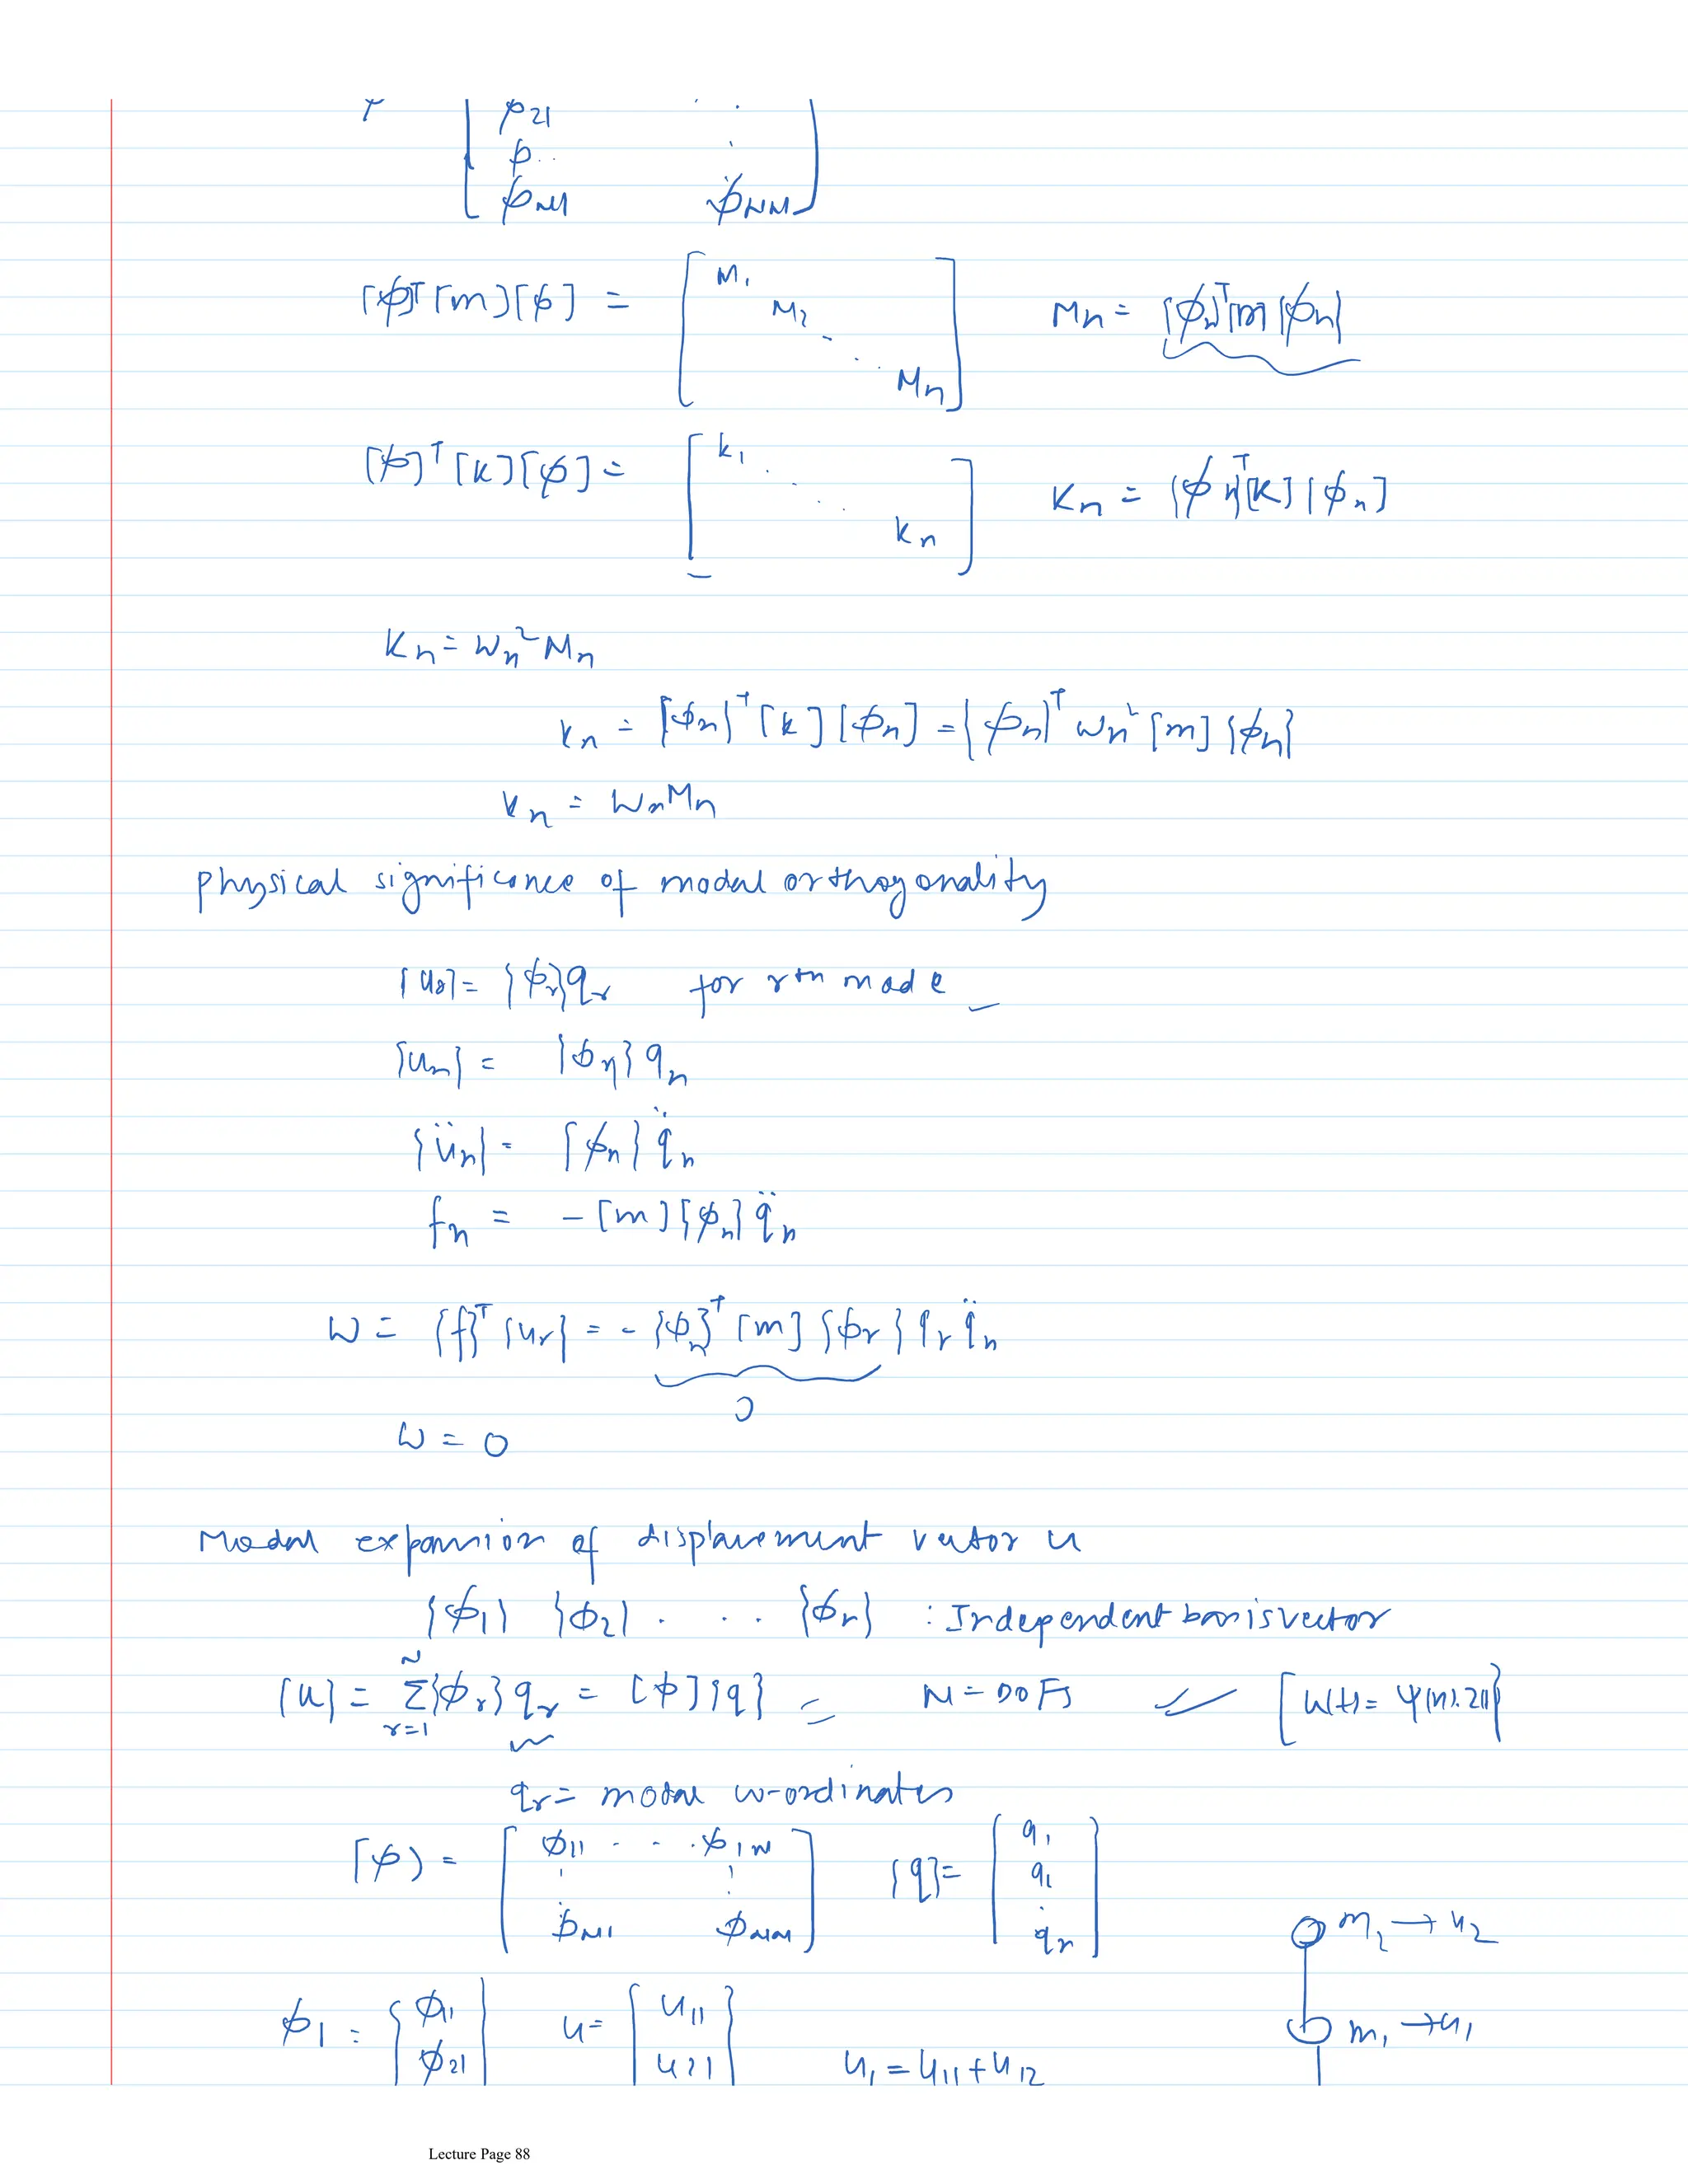 φ21 . .
φ.. .
φN1 φNN
[φ]ᵀ[m][φ] = [M1 M2 . . . Mn] Mn = {φn}ᵀ[m]{φn}
[φ]ᵀ[k][φ] = [k1 . . . kn] Kn = {φn}ᵀ[k]{φn]
Kn = ωn² Mn
kn = {φn}ᵀ[k][φn] = {φn}ᵀ ωn² [m]{φn}
kn = ωnMn
physical significance of modal orthogonality
{ur} = {φr}qr for rth mode
{un} = {φn}qn
{ün} = {φn}q̈n
fn = -[m]{φn}q̈n
W = {f}ᵀ{ur} = -{φn}ᵀ[m]{φr}qr q̈n
0
W = 0
Modal expansion of displacement vector u
{φ1} {φ2} . . . {φr} : Independent basis vector
{u} = Σ{φr}qr = [φ]{q} N = DOFs [u(t) =
N
r=1
qr = modal co-ordinates
[φ] = [φ11 . . . φ1N φN1 φNN] {q} = {q1 q1 . qr}
m2 → u2
φ1 = {φ11 φ21} u = {u11 u21} m1 → u1
u1 = u11 + u12
Lecture Page 88